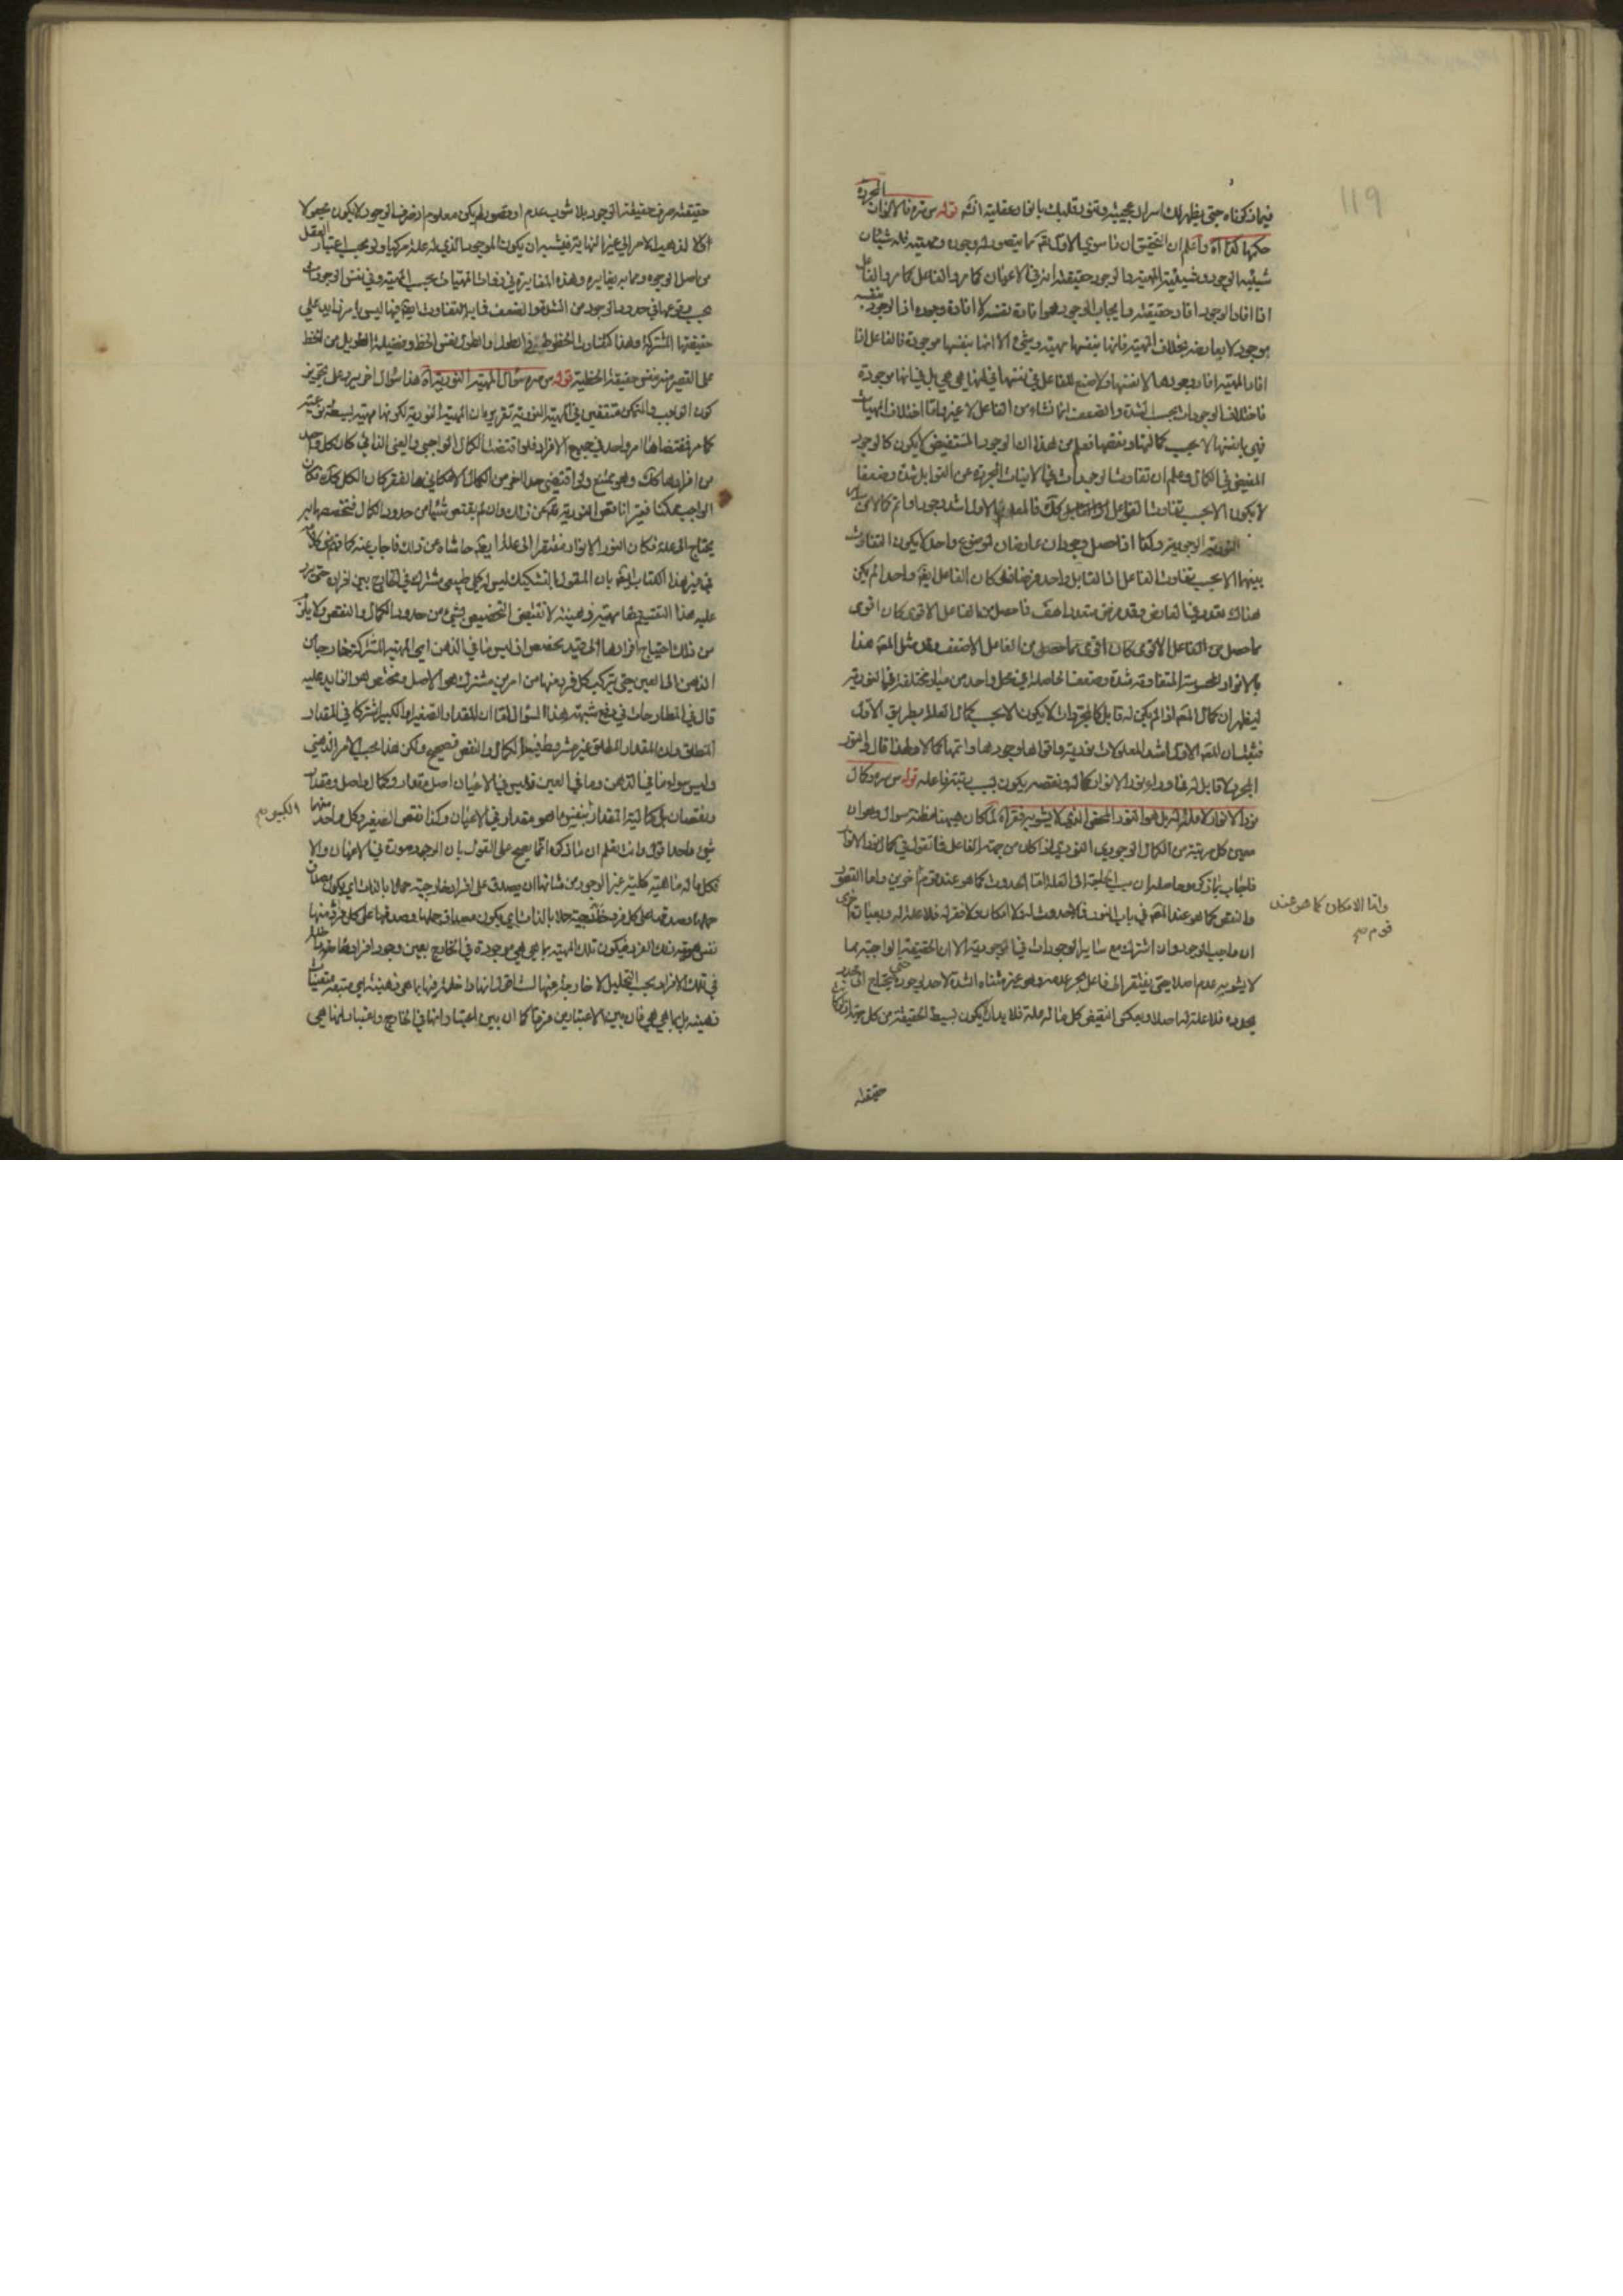 119
فيما ذكرناه حتى يظهر لك اسرار عجيبة وتنور قلبك بانوار عقلية انشه قوله س سره فالانوار المجردة
حكمها كذا آه واعلم ان التحقيق ان ما سوى الاول تع مما يتصور له وجود ومهية فله شيئان
شيئية الوجود وشيئية المهية والوجود حقيقة في الاعيان كما مر والفاعل
اذا افاد الوجود افاد حقيقته وايجاب الوجود هو افادة نفسه لا افادة وجوده اذ الوجود بنفسه
موجود لا بعارضه بخلاف المهية فانها بنفسها مهية وشيء الا انها بنفسها موجودة فالفاعل اذا
افاد المهية افاد وجودها لا نفسها ولا صنع للفاعل في نفسها في انها هي هي بل في انها موجودة
فاختلاف الوجودات بحسب الشدة والضعف انما نشاء من الفاعل لا غير واما اختلاف المهيات
فهي بانفسها لا بحسب كمالها ونقصها فعلم من هذا ان الوجود المستفيض لا يكون كالوجود
المفيض في الكمال وعلم ان تفاوت الوجودات في الانيات المجردة عن القوابل شدة وضعفا
لا يكون الا بحسب تفاوت الفواعل كك فالمعلول الاول اشد وجودا واتم كمالا من
النورية الوجودية وكذا اذا حصل وجودان عارضان لموضوع واحد لا يكون التفاوت
بينهما الا بحسب تفاوت الفاعل اذ القابل واحد فرضا فلو كان الفاعل ايضا واحدا لم يكن
هناك تعدد في العارض وقد فرض متعددا هف فاحصل من الفاعل الاقوى كان اقوى
مما حصل من الفاعل الاضعف وقد مثل المص هذا
بالانوار المحسوسة المتفاوتة شدة وضعفا الحاصلة في محل واحد من مباد مختلفة في النورية
ليظهر ان كمال المعلول اذا لم يكن له قابل كالمجردات لا يكون الا بحسب كمال العلة بطريق الاولى
فثبت ان المعلول الاول اشد المعلولات نورية واقواها وجودا واتمها كمالا ولهذا قال ان النور
المجرد لا قابل له فما وراء نور الانوار كماله ونقصه يكون بسبب رتبة فاعله قوله س سره وكمال
نور الانوار لا علة له بل هو النور المحض الذي لا يشوبه فقر آه لما كان ههنا مظنة سوال وهو ان
معين كل مرتبة من الكمال الوجودي النوري اذا كان من جهة الفاعل فما تقول في كمال نور الانوار
فاجاب بما ذكره وحاصله ان سبب الحاجة الى العلة اما الحدوث كما هو عند قوم آخرين واما القصور
واما الامكان كما هو عند
قوم صح
والنقص كما هو عند المص في باب النور فلا حدوث له ولا امكان ولا فقر له فلا علة له وبعبارة اخرى
ان واجب الوجود وان اشترك مع سائر الوجودات في الوجودية الا ان الحقيقة الواجبية مما
لا يشوبه عدم اصلا حتى يفتقر الى فاعل يخرج عدمه وهي غير متناه الشدة لا حد لوجوده حتى يحتاج الى محدد
يحدده فلا علة له اصلا وبعكس النقيض كل ما له علة فلا بد ان لا يكون بسيط الحقيقة من كل جهة
حقيقته
حقيقته صرف حقيقة الوجود بلا شوب عدم او قصور لم يكن معلولا اذ صرف الوجود لا يكون مجعولا
والا لذهب الامر الى غير النهاية فيثبت ان يكون الموجود الذي له علة مركبا ولو بحسب اعتبار العقل
من اصل الوجود ومما به يغايره وهذه المغايرة في ذوات المهيات بحسب المهية وفي نفس الوجودات
بحسب وقوعها في حدود الوجود من الشدة والضعف فما به التفاوت ايضا فيها ليس بامر زايد على
حقيقتها المشتركة وهذا كتفاوت الخطوط في الطول والطول نفس الخط وفضيلة الطويل من الخط
على القصير منه بنفس حقيقة الخطية قوله س سره سؤال المهية النورية آه هذا سؤال آخر يرد على تجويز
كون الواجب والممكن متفقين في المهية النورية تقريره ان المهية النورية لكونها مهية بسيطة نوعية
كما مر فمقتضاها امر واحد في جميع الافراد فلو اقتضت الكمال الواجبي والغنى الذاتي كان كل واحد
من افرادها كك وهو ممتنع ولو اقتضى حدا آخر من الكمال الامكاني والفقر كان الكل كك فكان
الواجب ممكنا فقيرا ناقص النورية تع عن ذلك وان لم يقتض شيئا من حدود الكمال فتخصصها به
يحتاج الى علة فكان نور الانوار مفتقرا الى علة ايضا حاشاه من ذلك فاجاب عنه كما قد مر في كلامه
في غير هذا الكتاب ايضا بان المقول بالتشكيك ليس له كلي طبيعي مشترك في الخارج بين افراده حتى يرد
عليه هذا التقسيم فانها مهية ذهنية لا تقتضي التخصيص بشيء من حدود الكمال والنقص ولا يلزم
من ذلك احتياج افرادها الى قيد مخصص اذ ليس ما في الذهن اي المهية المشتركة خارجا من
الذهن الى العين حتى يتركب كل فرد منها من امرين مشترك هو الاصل ومختص هو الزايد عليه
قال في المطارحات في دفع شبهة هذا السؤال اما ان المقدار الصغير والكبير اشتركا في المقدار
المطلق وان المقدار المطلق غير مشروط فيه الكمال والنقص فصحيح ولكن هذا بحسب الامر الذهني
وليس سواء ما في الذهن وما في العين فليس في الاعيان اصل مقدار وكمال واصل ومقدار
ونقصان بل كمالية المقدار بنفس ما هو مقدار في الاعيان وكذا نقص الصغير وكل واحد منهما
الكبير صح
شيء واحد اقول وانت تعلم ان ما ذكره انما يصح على القول بان الوجود صورة في الاعيان والا
فكل ما له ماهية كلية غير الوجود من شانها ان يصدق على افراد خارجية حملا بالذات اي يكون مصداق
حملها وصدقها على كل فرد منها
نفس هوية ذلك الفرد فيكون تلك المهية بما هي هي موجودة في الخارج بعين وجود افرادها
في تلك الافراد بحسب التحليل لا خارجة عنها
ذهنية بل بما هي هي فان بين الاعتبارين فرقا كما ان بين اعتبار انها في الخارج واعتبار انها هي